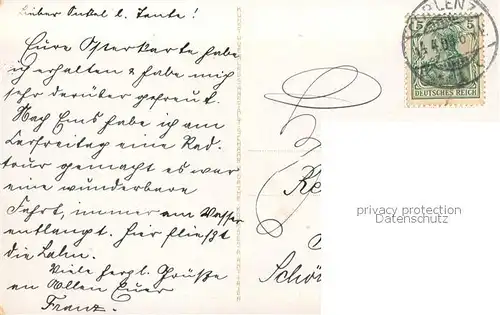 Lieber Onkel & Tante!
Eure Osterkarte habe
ich erhalten & habe mich
sehr darüber gefreut.
Nach Ems habe ich am
Karfreitag eine Rad.
tour gemacht es war
eine wunderbare
Fahrt, immer am Wasser
entlangt. Hier fließt
die Lahn.
Viele herzl. Grüße
an Allen Euer
Franz.
BLENZ
5 5
DEUTSCHES REICH
privacy protection
Datenschutz
Schön